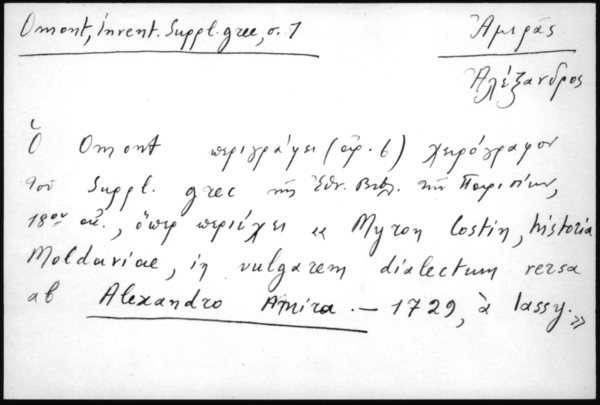 Omont, Invent. Suppl. grec, σ. 1
Ἀμηρᾶς
Ἀλέξανδρος
Ὁ Omont περιγράφει (ἀρ. 6) χειρόγραφον
τοῦ Suppl. grec τῆς Ἐθν. Βιβλ. τῶν Παρισίων,
18ου αἰ., ὅπερ περιέχει « Myron Costin, historia
Moldaviae, in vulgarem dialectum versa
ab Alexandro Amira. — 1729, à Iassy. »